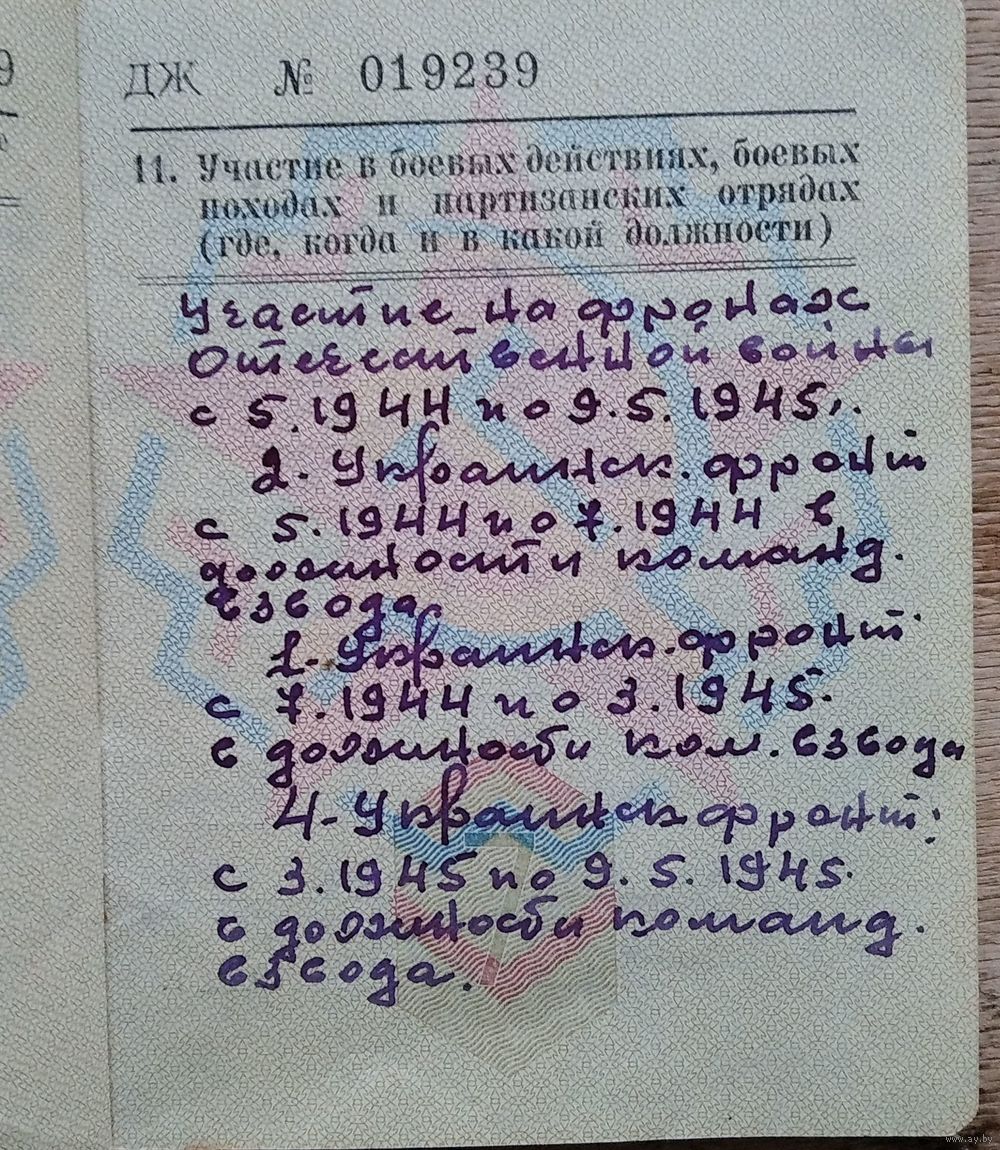 9
е
ДЖ № 019239
11. Участие в боевых действиях, боевых
походах и партизанских отрядах
(где, когда и в какой должности)
Участие на фронтах
Отечественной войны
с 5.1944 по 9.5.1945г.
2-Украинск. фронт
с 5.1944 по 7.1944 в
должности команд.
взвода.
1-Украинск. фронт.
с 7.1944 по 3.1945.
в должности ком. взвода
4-Украинск фронт.
с 3.1945 по 9.5.1945.
в должности команд.
взвода.
www.ay.by